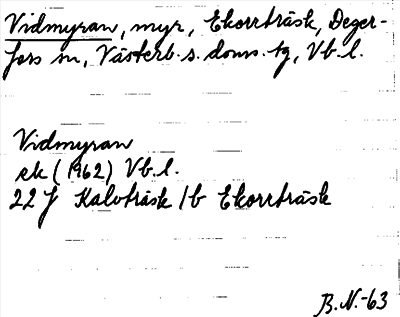 Vidmyran, myr, Ekorrträsk, Deger-
fors sn, Västerb. s. doms. tg, Vb. l.
Vidmyran
ek (1962) Vb. l.
22 J Kalvträsk 1b Ekorrträsk
B. N. -63